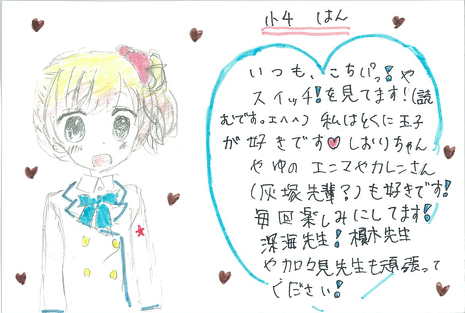 小4 はん
いつも、こちパっ!や
スイッチ!を見てます!(読
むです。エヘへ) 私はとくに王子
が好きです♥しおりちゃん
やゆの エニマやカレンさん
(灰塚先輩?)も好きです!
毎回楽しみにしてます!
深海先生!榎木先生
や加々見先生も頑張って
ください!